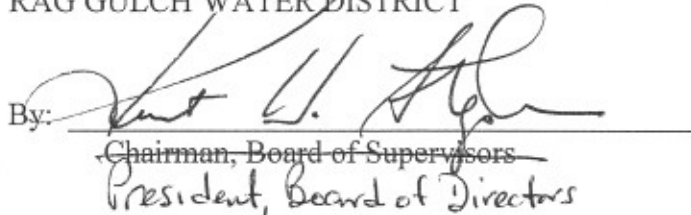 RAG GULCH WATER DISTRICT
By:
Chairman, Board of Supervisors
President, Board of Directors